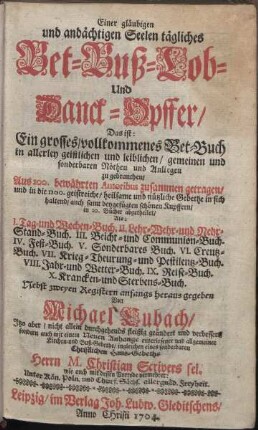 Einer gläubigen
und andächtigen Seelen tägliches
Bet-Buß-Lob-
Und
Danck-Opffer/
Das ist:
Ein grosses/vollkommenes Bet-Buch
in allerley geistlichen und leiblichen/ gemeinen und
sonderbaren Nöthen und Anliegen
zu gebrauchen/
Aus 100. bewährten Autoribus zusammen getragen/
und in die 1100. geistreiche/ heilsame und nützliche Gebethe in sich
haltend/ auch samt beygefügten schönen Kupffern/
in 10. Bücher abgetheilet/
Als:
I. Tag-und Wochen-Buch. II. Lehr-Wehr-und Nehr-
Stand-Buch. III. Beicht-und Communion-Buch.
IV. Fest-Buch. V. Sonderbares Buch. VI. Creutz-
Buch. VII. Krieg-Theurung-und Pestilentz-Buch.
VIII. Jahr-und Wetter-Buch. IX. Reise-Buch.
X. Krancken-und Sterbens-Buch.
Nebst zweyen Registern anfangs heraus gegeben
Von
Michael Cubach/
Itzo aber/ nicht allein durchgehends fleißig geändert und verbessert/
sondern auch mit einem
Herrn M. Christian Scrivers sel.
Unter Röm. Käis. und Churf. Sächs. allergnäd. Freyheit.
Leipzig/ im Verlag Joh. Ludw. Gleditschens/
Anno Christi 1704.